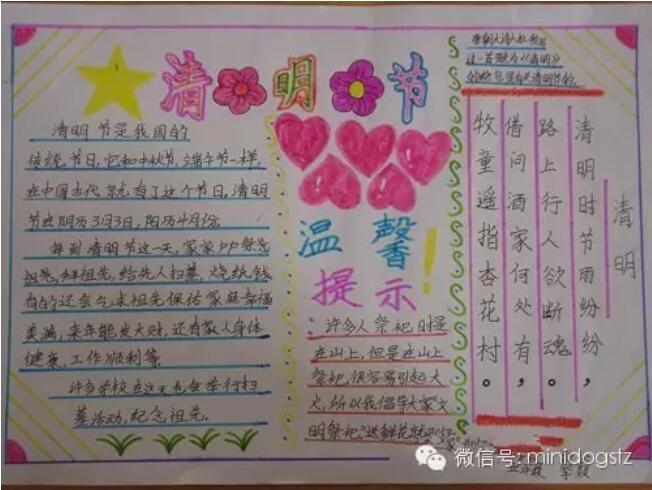 清明节
清明节是我国的
传统节日,它和中秋节、端午节一样,
在中国古代就有了这个节日,清明
节在阴历3月3日,阳历4月份。
每到清明节这一天,家家户户祭
祖先,拜祖先,给先人扫墓,烧纸钱
有的还会乞求祖先保佑家庭幸福
美满,来年能发大财,还有家人身体
健康,工作顺利等。
许多学校在这天也会举行扫
墓活动,纪念祖先。
温馨
提示!
许多人祭祀时是
在山上,但是在山上
祭祀,很容易引起大
火,所以我倡导大家文
明祭祀,"送鲜花
清明
清明时节雨纷纷,
路上行人欲断魂。
借问酒家何处有,
牧童遥指杏花村。
微信号: minidogstz